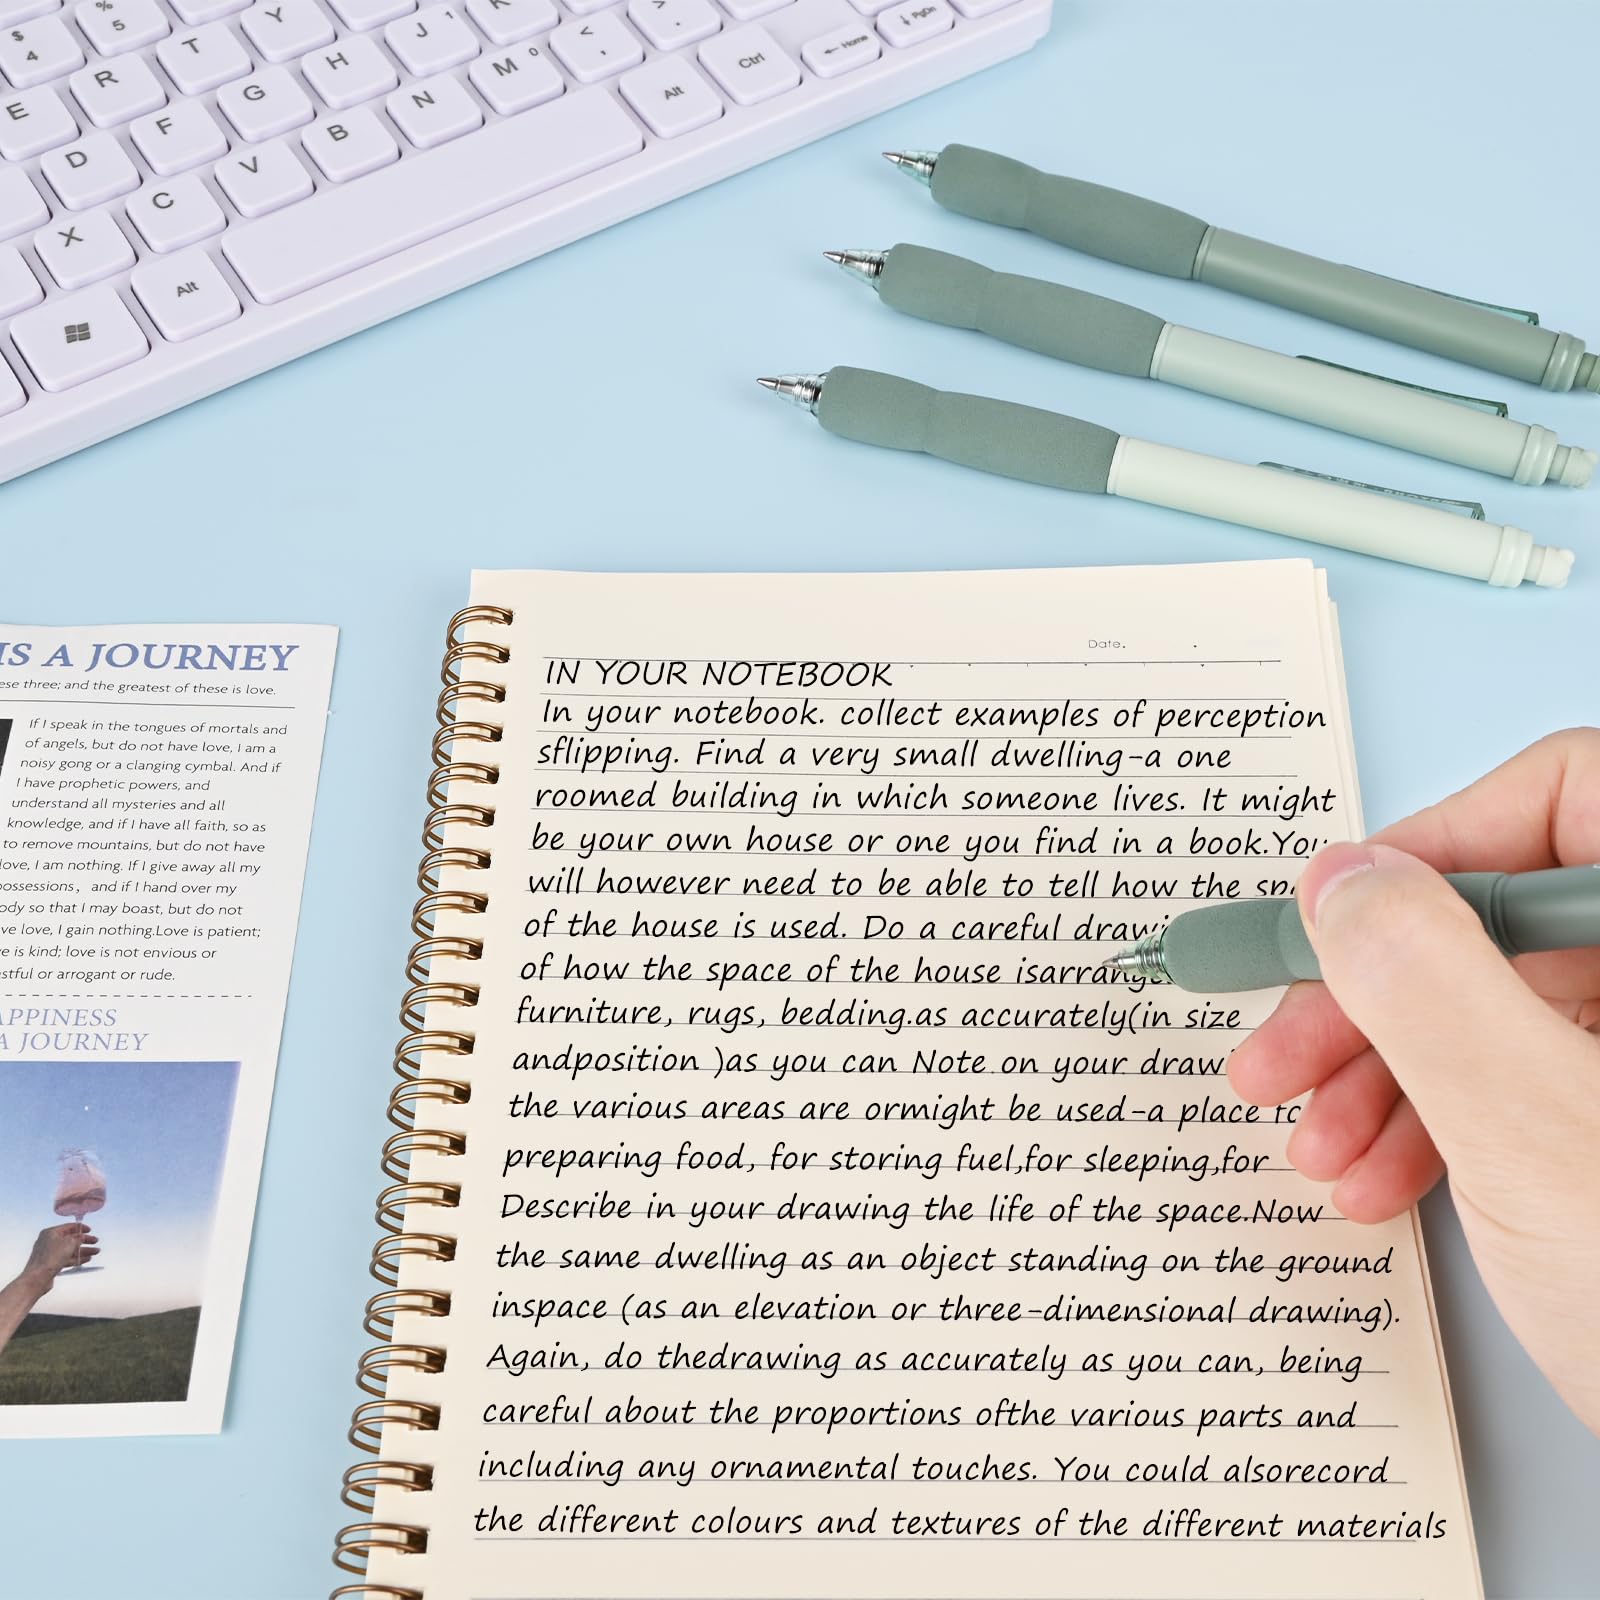 $
4
%
5
E
R
T
Y
D
F
G
H
J
1
K
X
C
V
B
N
M
0
<
,
>
.
Alt
Alt
Ctrl
← Home
↓ PgDn
IS A JOURNEY
ese three; and the greatest of these is love.
If I speak in the tongues of mortals and
of angels, but do not have love, I am a
noisy gong or a clanging cymbal. And if
I have prophetic powers, and
understand all mysteries and all
knowledge, and if I have all faith, so as
to remove mountains, but do not have
love, I am nothing. If I give away all my
possessions, and if I hand over my
ody so that I may boast, but do not
ve love, I gain nothing.Love is patient;
e is kind; love is not envious or
astful or arrogant or rude.
APPINESS
A JOURNEY
Date.
IN YOUR NOTEBOOK
In your notebook. collect examples of perception
sflipping. Find a very small dwelling-a one
roomed building in which someone lives. It might
be your own house or one you find in a book.You
will however need to be able to tell how the
of the house is used. Do a careful drawi
of how the space of the house isarrang
furniture, rugs, bedding.as accurately(in size
andposition )as you can Note on your draw
the various areas are ormight be used-a place
preparing food, for storing fuel,for sleeping,for
Describe in your drawing the life of the space.Now
the same dwelling as an object standing on the ground
inspace (as an elevation or three-dimensional drawing).
Again, do thedrawing as accurately as you can, being
careful about the proportions ofthe various parts and
including any ornamental touches. You could alsorecord
the different colours and textures of the different materials